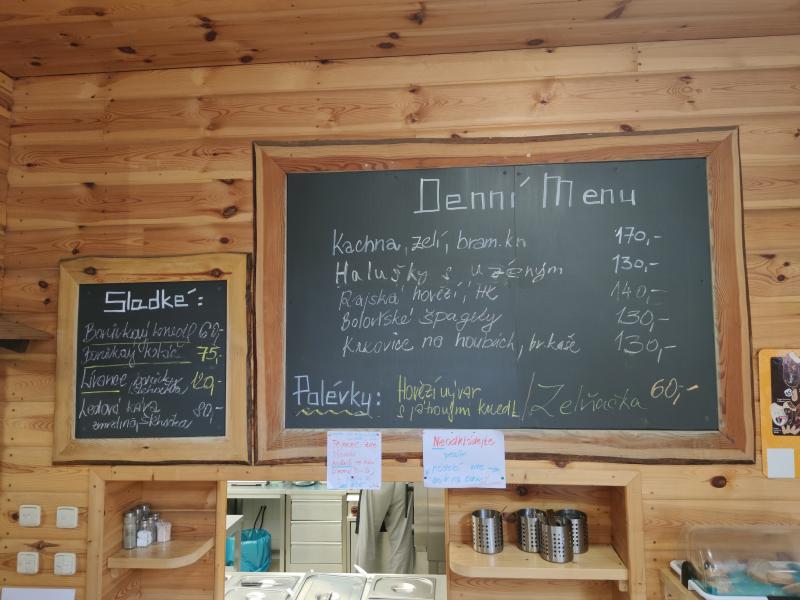 Denní Menu
Kachna, zelí, bram. kn 170,-
Halušky s uzeným 130,-
Rajská hovězí, HK 140,-
Boloňské špagety 130,-
Krkovice na houbách, br. kaše 130,-
Polévky: Hovězí vývar / Zelňačka 60,-
s játrovými knedl.
Sladké:
Borůvkový knedl 60,-
Borůvkový koláč 75,-
Lívance borůvky 120,-
šlehačka
Ledová káva 80,-
zmrzlina, šlehačka
Neodkládejte